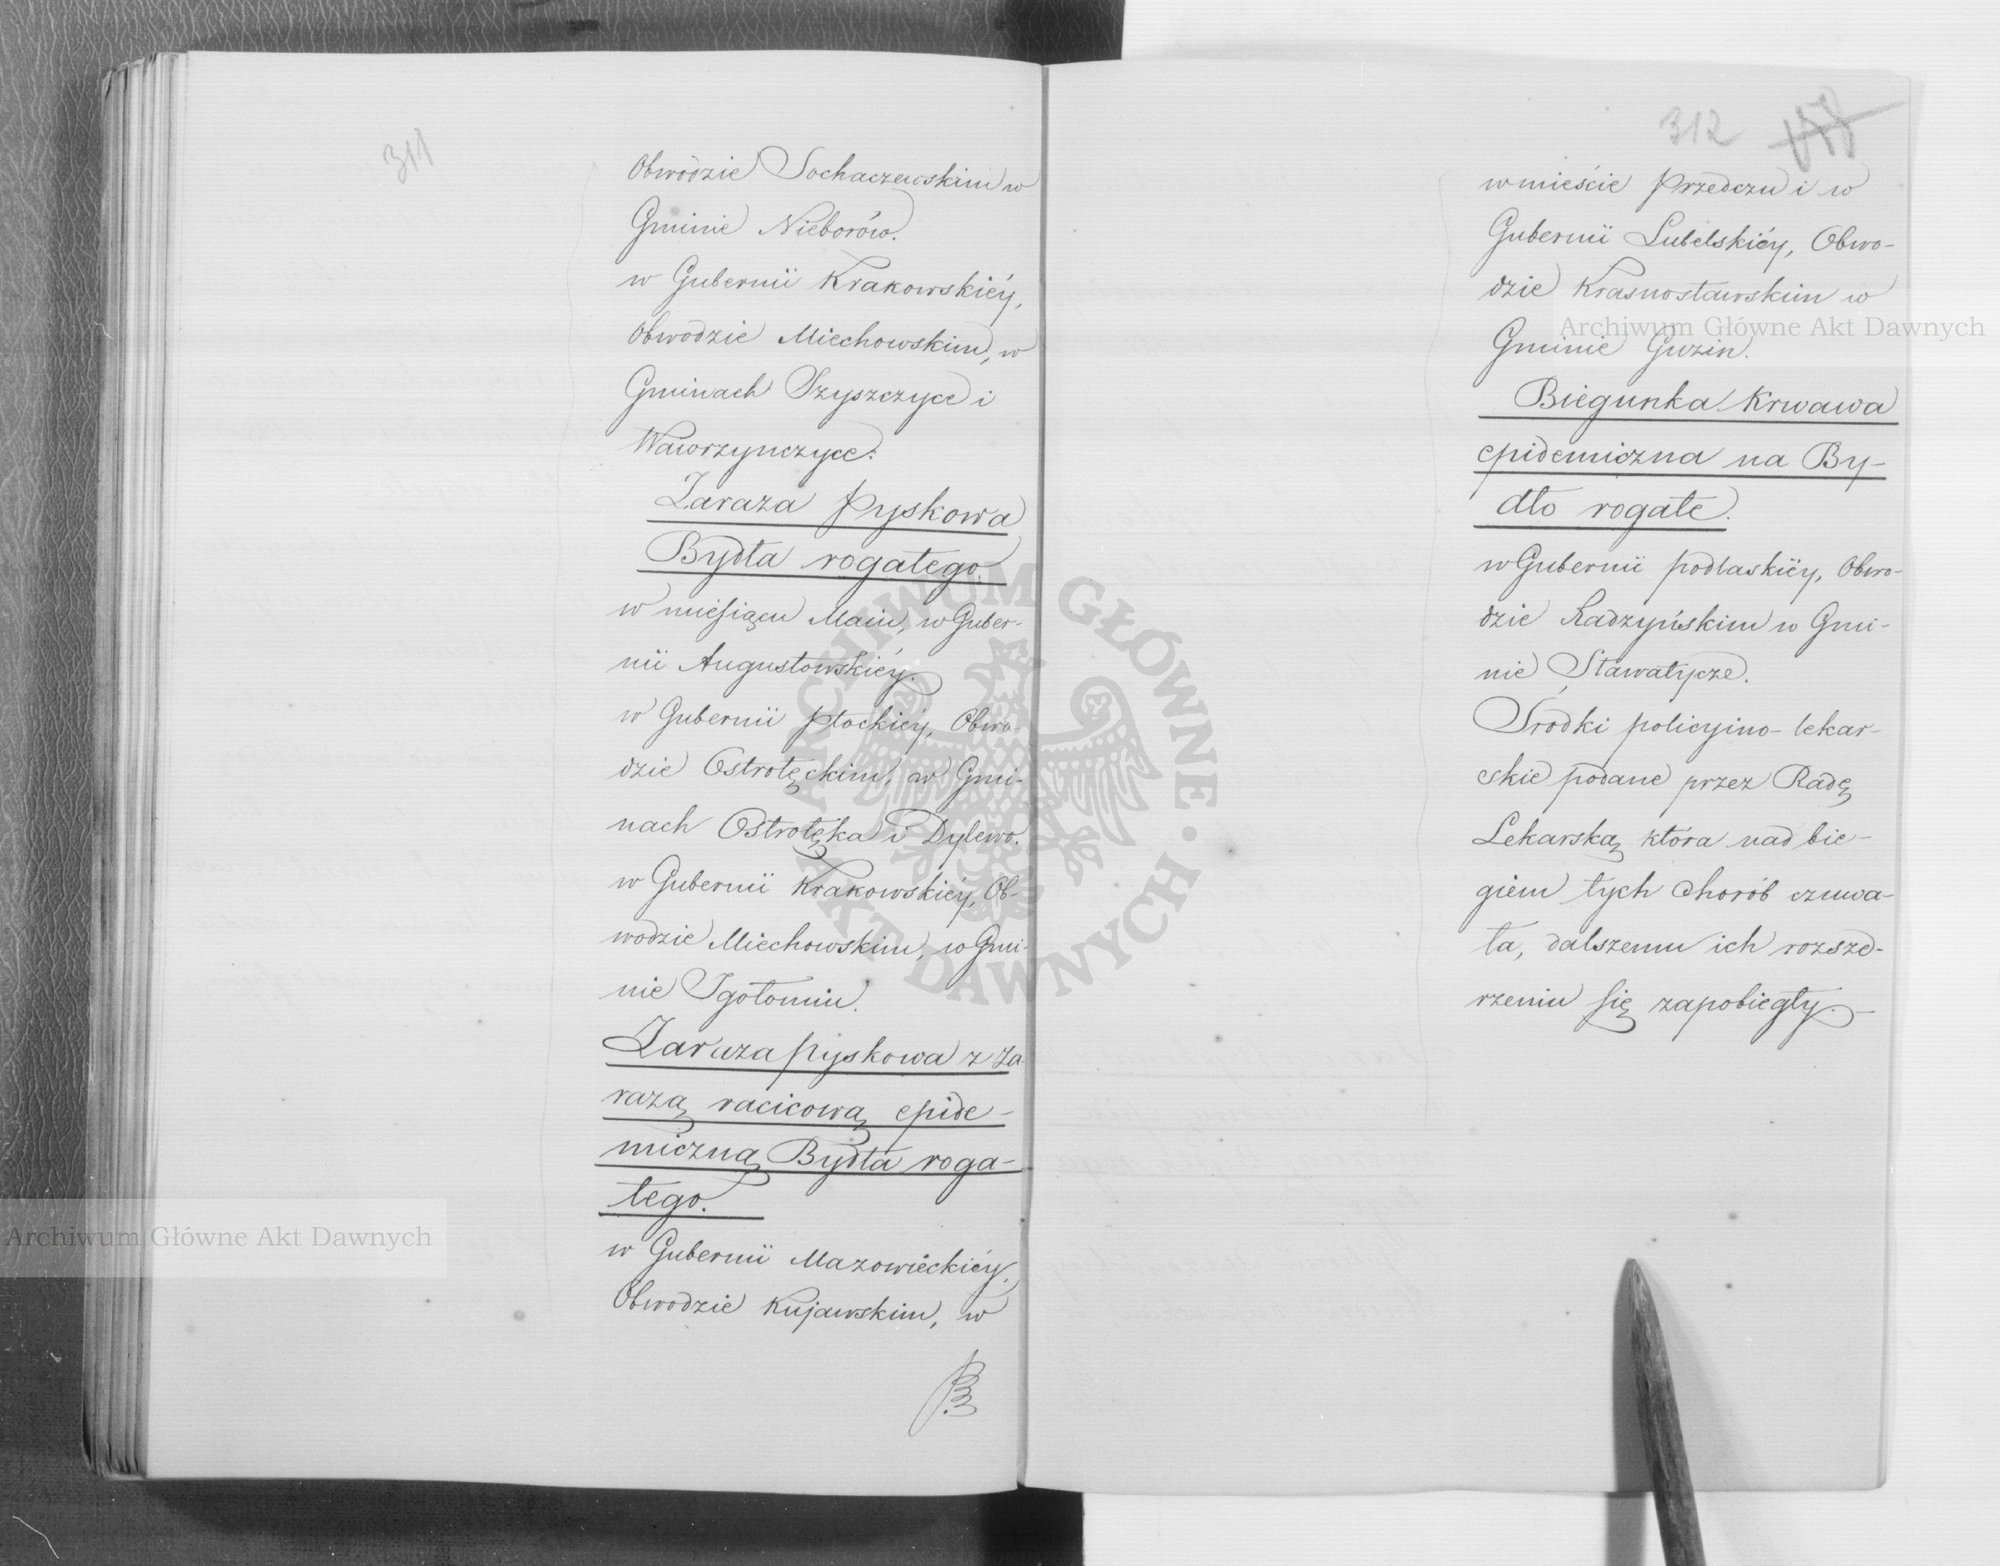 311
Obwodzie Sochaczewskim w
Gminie Nieborów.
w Gubernii Krakowskiéy,
Obwodzie Miechowskim, w
Gminach Szyszczyce i
Wawrzynczyce.
Zaraza Pyskowa
Bydła rogatego.
w miesiącu Maiu, w Guber-
nii Augustowskiéy.
w Gubernii Płockiéy, Obwo-
dzie Ostrołęckim, w Gmi-
nach Ostrołęka i Dylewo.
w Gubernii Krakowskiéy, Ob-
wodzie Miechowskim, w Gmi-
nie Igołomiu.
Zaraza pyskowa z Za-
razą racicową epide-
miczną Bydła roga-
tego.
w Gubernii Mazowieckiéy,
Obwodzie Kujawskim, w
312
w mieście Przedczu i w
Gubernii Lubelskiéy, Obwo-
dzie Krasnostawskim w
Gminie Guzin.
Biegunka Krwawa
epidemiczna na By-
dło rogate.
w Gubernii Podlaskiéy, Obwo-
dzie Radzyńskim w Gmi-
nie Sławatycze.
Środki policyino-lekar-
skie podane przez Radę
Lekarską która nad bie-
giem tych chorób czuwa-
ła, dalszemu ich rozsze-
rzeniu się zapobiegły.—
Archiwum Główne Akt Dawnych
Archiwum Główne Akt Dawnych
ARCHIWUM GŁÓWNE AKT DAWNYCH